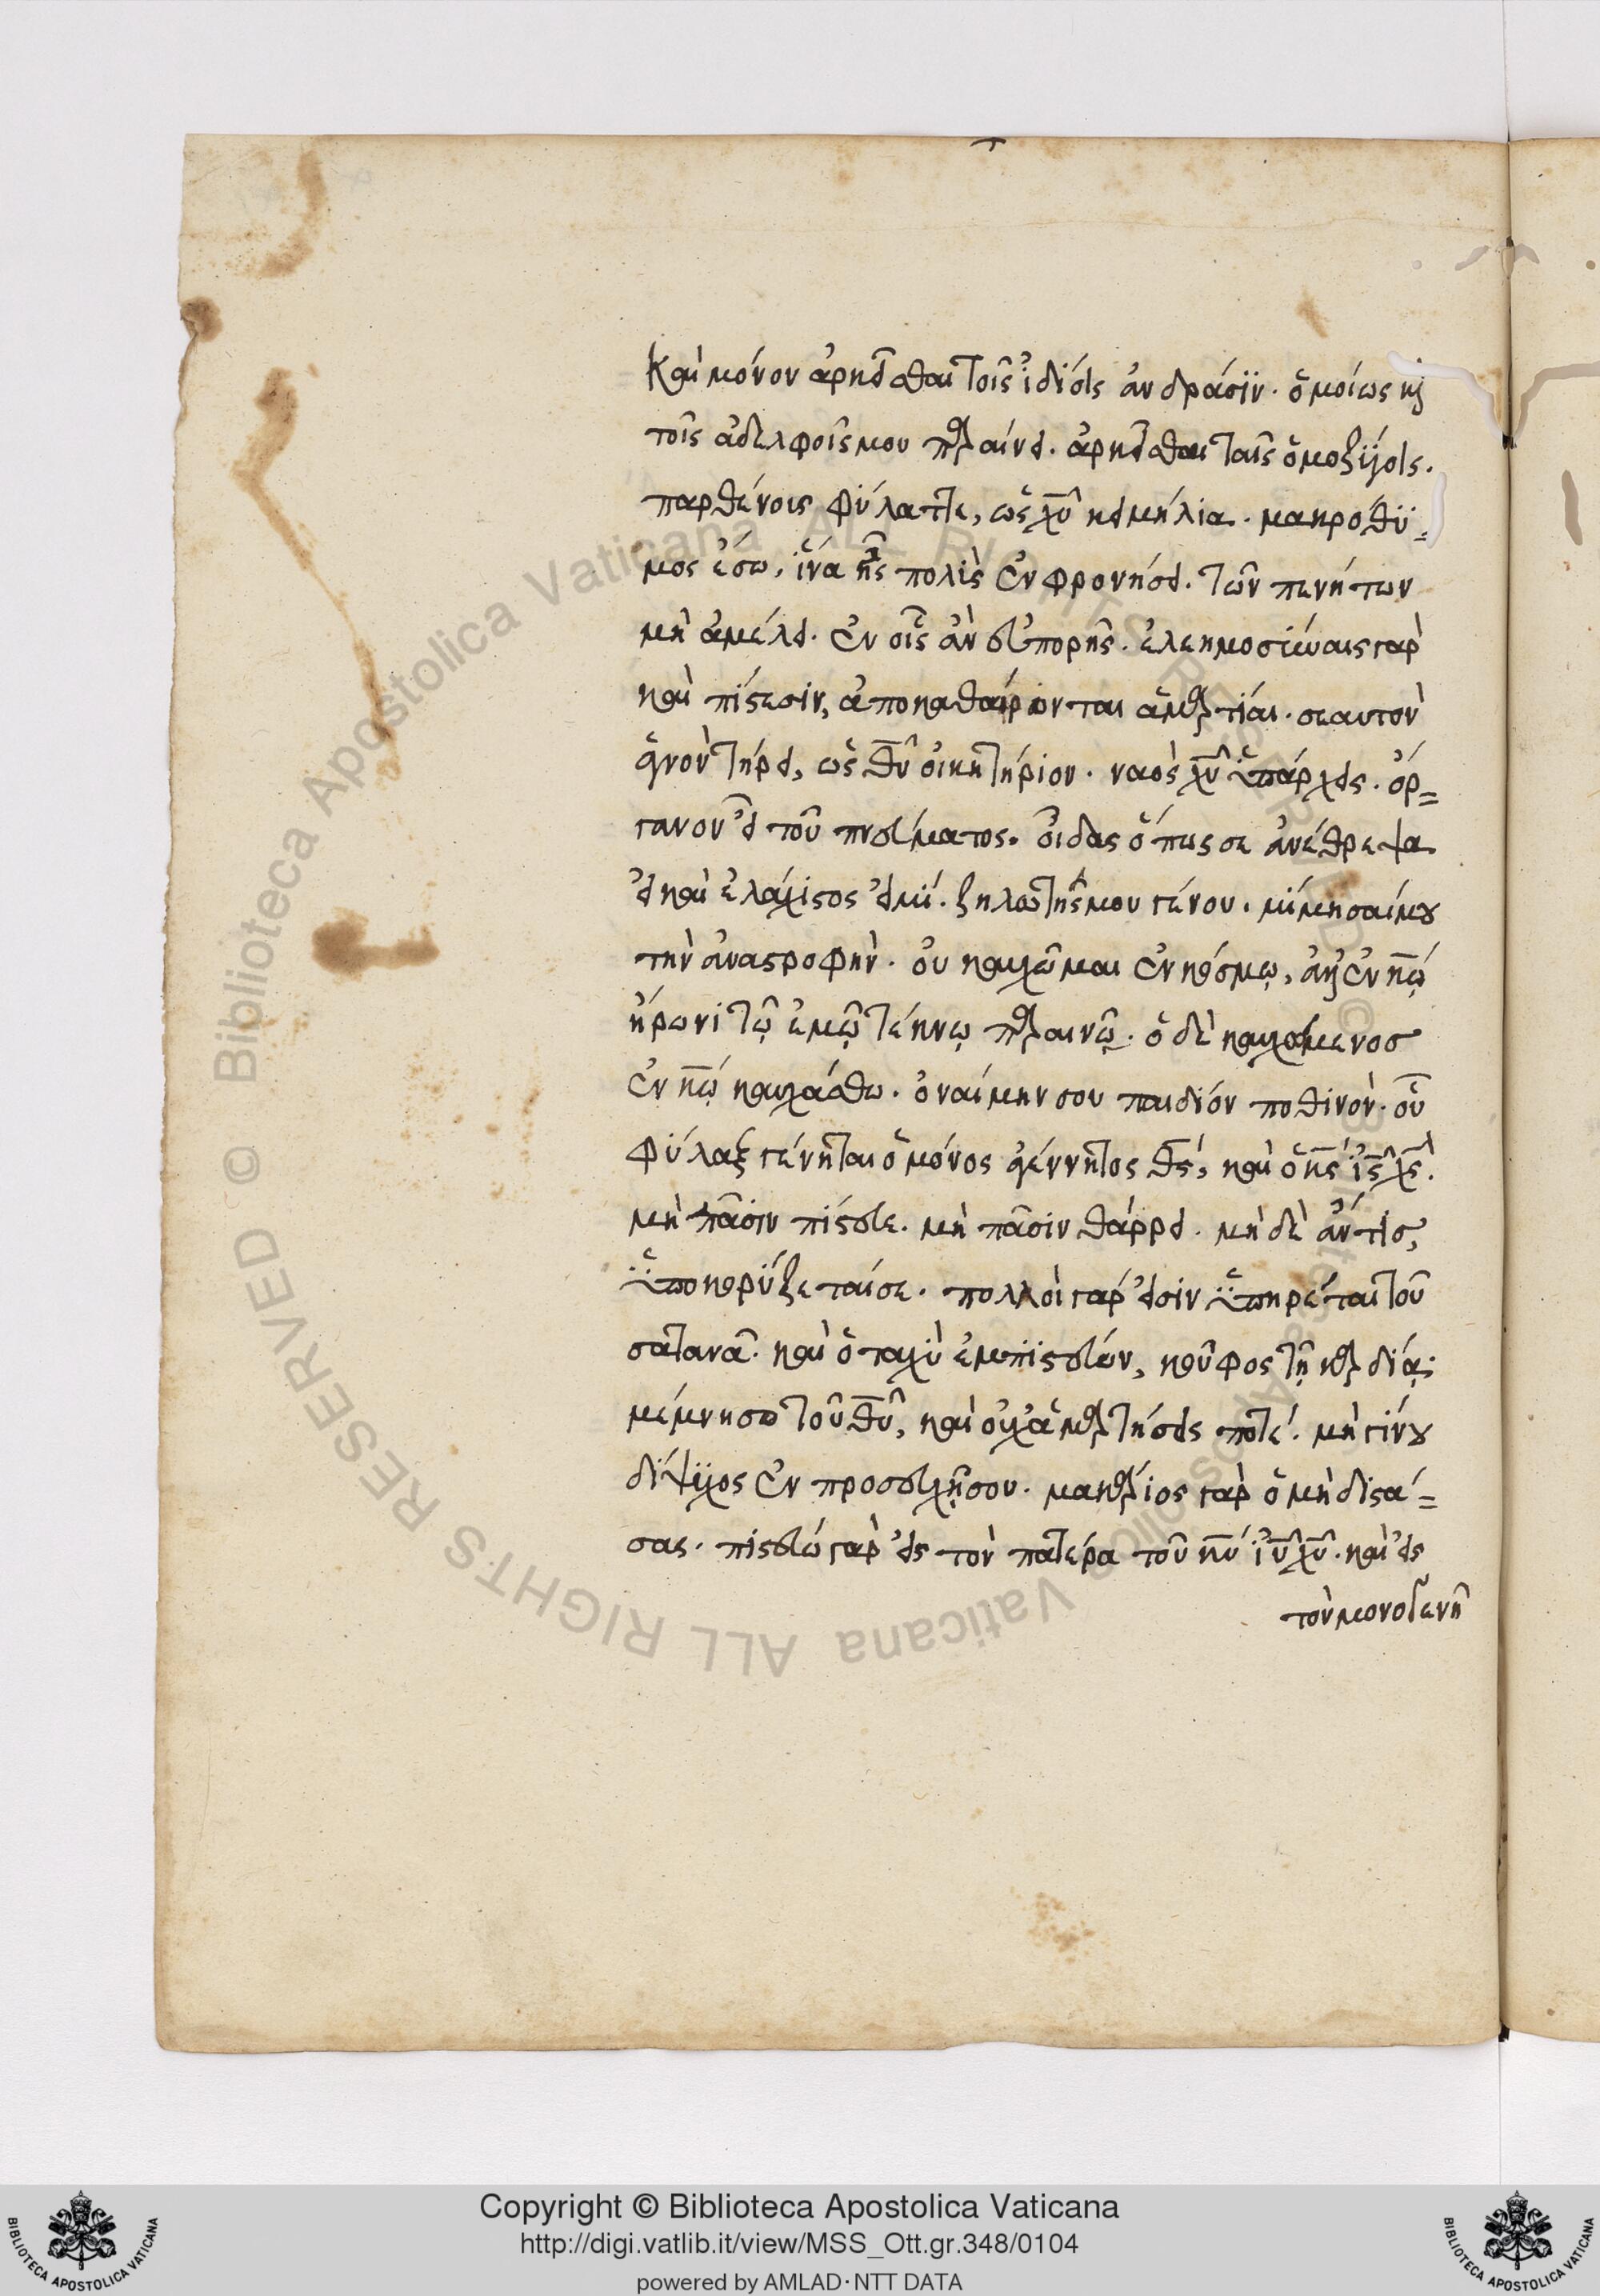 Καὶ μόνον ἀρκεῖσθαι τοῖς ἰδίοις ἀνδράσιν· ὁμοίως κὶ
τοῖς ἀδελφοῖς μου παραίνει· ἀρκεῖσθαι ταῖς ὁμοζύγοις.
παρθένοις φύλαττε, ὡς χυ̅ κειμήλια· μακρόθϋ=
μος ἔσω, ἵνα ἦς πολὺς ἐν φρονήσει. τῶν πενήτων
μὴ ἀμέλει. ἐν οἷς ἂν εὐπορῇς. ἐλεημοσύναις γαρ
καὶ πίστεσιν, ἀποκαθαίρονται ἁμαρτίαι. σεαυτὸν
ἁγνὸν τήρει, ὡς θυ̅ οἰκητήριον. ναὸς χυ̅ ὑπάρχεις. ὄρ=
γανον εἶ τοῦ πνεύματος. οἶδας ὅπως σε ἀνέθρεψα
εἰ καὶ ἐλάχιστος εἰμί. ζηλωτής μου γένου. μίμησαί μου
τὴν ἀναστροφὴν. οὐ καυχῶμαι ἐν κόσμῳ, ἀλλ' ἐν κω̅
ἥρωνι τῷ ἐμῷ τέκνῳ παραινῶ. ὁ δὲ καυχόμενοσ
ἐν κω̅ καυχάσθω. ὀναίμην σου παιδίον ποθινόν. οὗ
φύλαξ γένηται ὁ μόνος ἀγέννητος θς̅, καὶ ὁ κς̅ ις̅ χς̅.
μὴ πᾶσιν πίστευε. μὴ πᾶσιν θάρρει. μὴ δὲ ἄν τισ,
ὑποκορίζεταί σε. πολλοὶ γάρ εἰσιν ὑπηρέται τοῦ
σατανᾶ. καὶ ὁ ταχὺ ἐμπιστεύων, κοῦφος τῇ καρδίᾳ.
μέμνησο τοῦ θυ̅, καὶ οὐχ ἁμαρτήσεις ποτέ. μὴ γίνου
δίψϋχος ἐν προσευχῇ σου. μακάριος γὰρ ὁ μὴ δισά=
σας. πιστεύω γὰρ εἰς τὸν πατέρα τοῦ κυ̅ ιυ̅ χυ̅. καὶ εἰς
τὸν μονογενῆ
© Biblioteca Apostolica Vaticana ALL RIGHTS RESERVED © Biblioteca Apostolica Vaticana ALL RIGHTS RESERVED
Copyright © Biblioteca Apostolica Vaticana
http://digi.vatlib.it/view/MSS_Ott.gr.348/0104
powered by AMLAD·NTT DATA
BIBLIOTECA APOSTOLICA VATICANA
BIBLIOTECA APOSTOLICA VATICANA